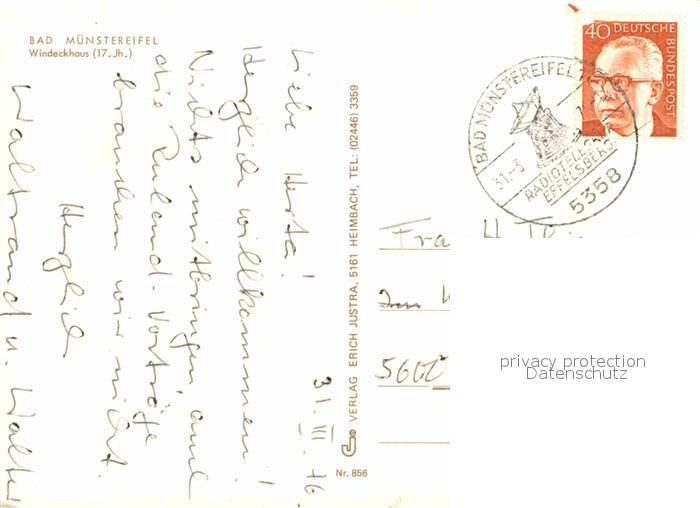 BAD MÜNSTEREIFEL
Windeckhaus (17. Jh.)
31. III. 76.
Liebe Herta!
Herzlich willkommen!
Nichts mitbringen, auch
die Ruland-Vorträge
brauchen wir nicht.
Herzlich
Waltraud u. Walter
VERLAG ERICH JUSTRA, 5161 HEIMBACH, TEL: (02446) 3359
Nr. 856
40 DEUTSCHE BUNDESPOST
BAD MÜNSTEREIFEL 1
31.-3
RADIOTELESKOP
EFFELSBERG
5358
Fra
Im
5600
privacy protection
Datenschutz